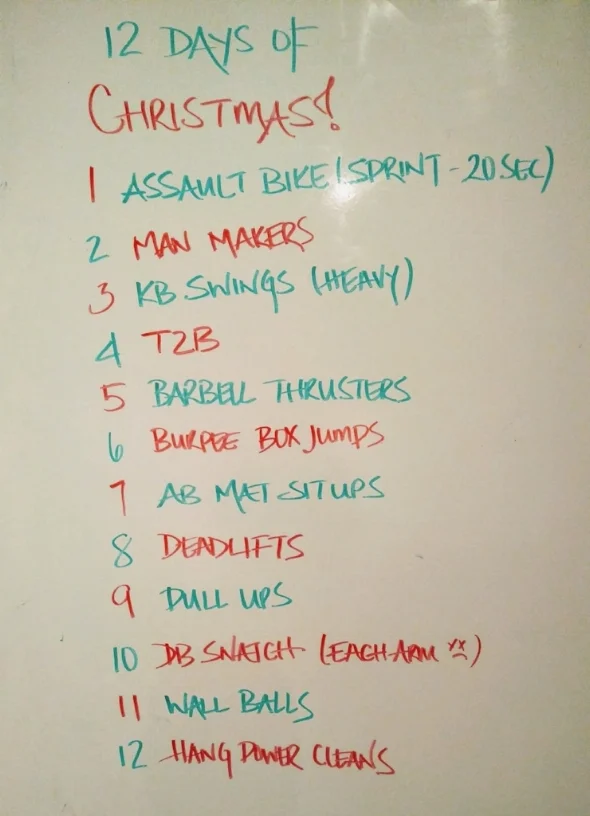 12 DAYS OF
CHRISTMAS!
1 ASSAULT BIKE (SPRINT - 20 SEC)
2 MAN MAKERS
3 KB SWINGS (HEAVY)
4 T2B
5 BARBELL THRUSTERS
6 BURPEE BOX JUMPS
7 AB MAT SIT UPS
8 DEADLIFTS
9 PULL UPS
10 DB SNATCH (EACH ARM)
11 WALL BALLS
12 HANG POWER CLEANS